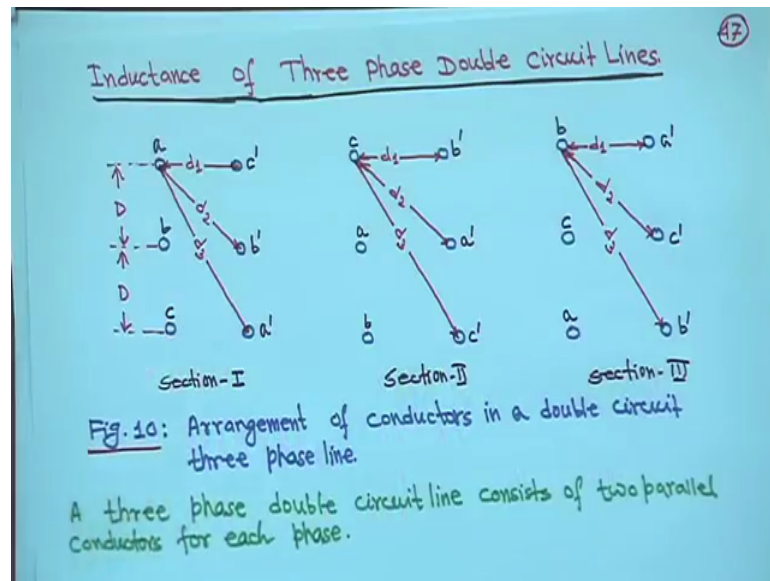 47
Inductance of Three Phase Double Circuit Lines.
a d1 c' c d1 b' b d1 a'
D b d2 b' a d2 a' c d2 c'
D c d3 a' b d3 c' a d3 b'
Section-I Section-II Section-III
Fig. 10: Arrangement of conductors in a double circuit
three phase line.
A three phase double circuit line consists of two parallel
conductors for each phase.